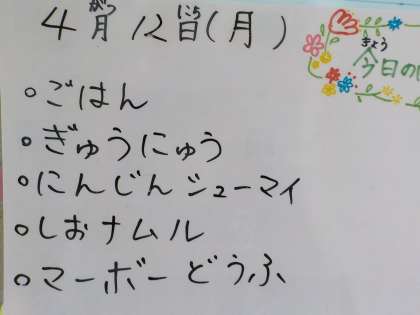 4月12日(月)
がつ にち
きょう
今日の
○ごはん
○ぎゅうにゅう
○にんじんシューマイ
○しおナムル
○マーボーどうふ